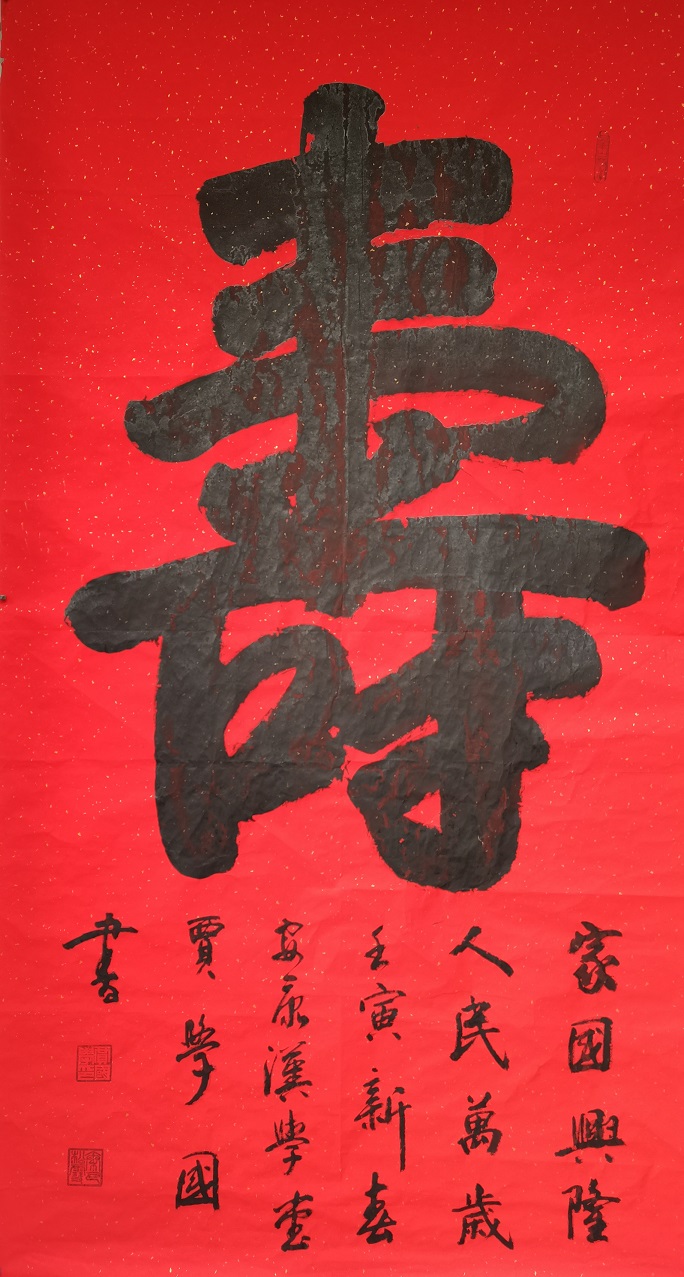 壽
家國興隆
人民萬歲
壬寅新春
安康漢學堂
賈學國
書